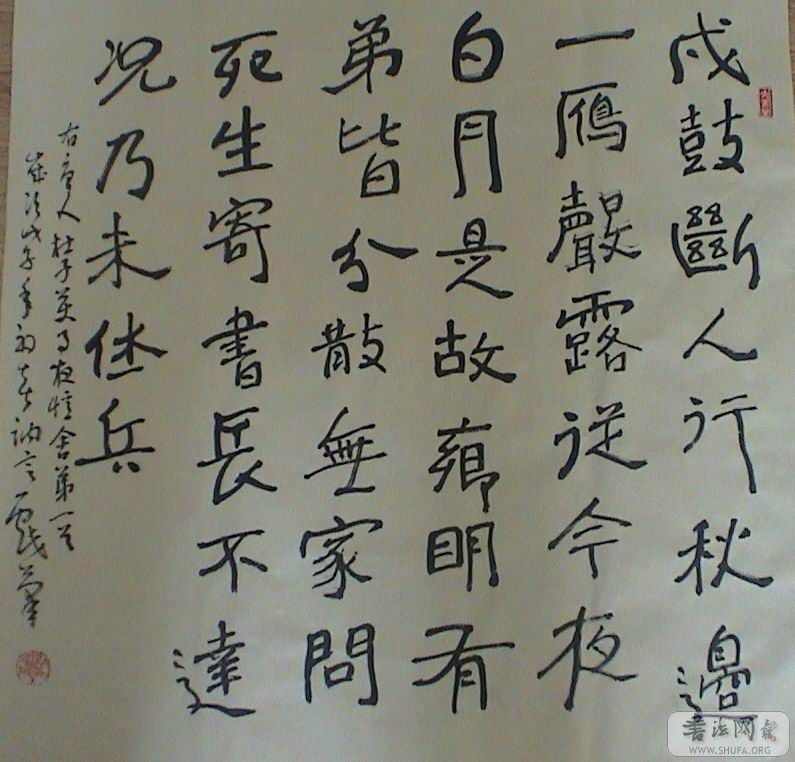 戍鼓斷人行秋邊
一鴈聲露從今夜
白月是故鄉明有
弟皆分散無家問
死生寄書長不達
况乃未休兵
右唐人杜子美月夜憶舍弟一首
歲次戊子年初春訥言戲筆
書法网
WWW.SHUFA.ORG